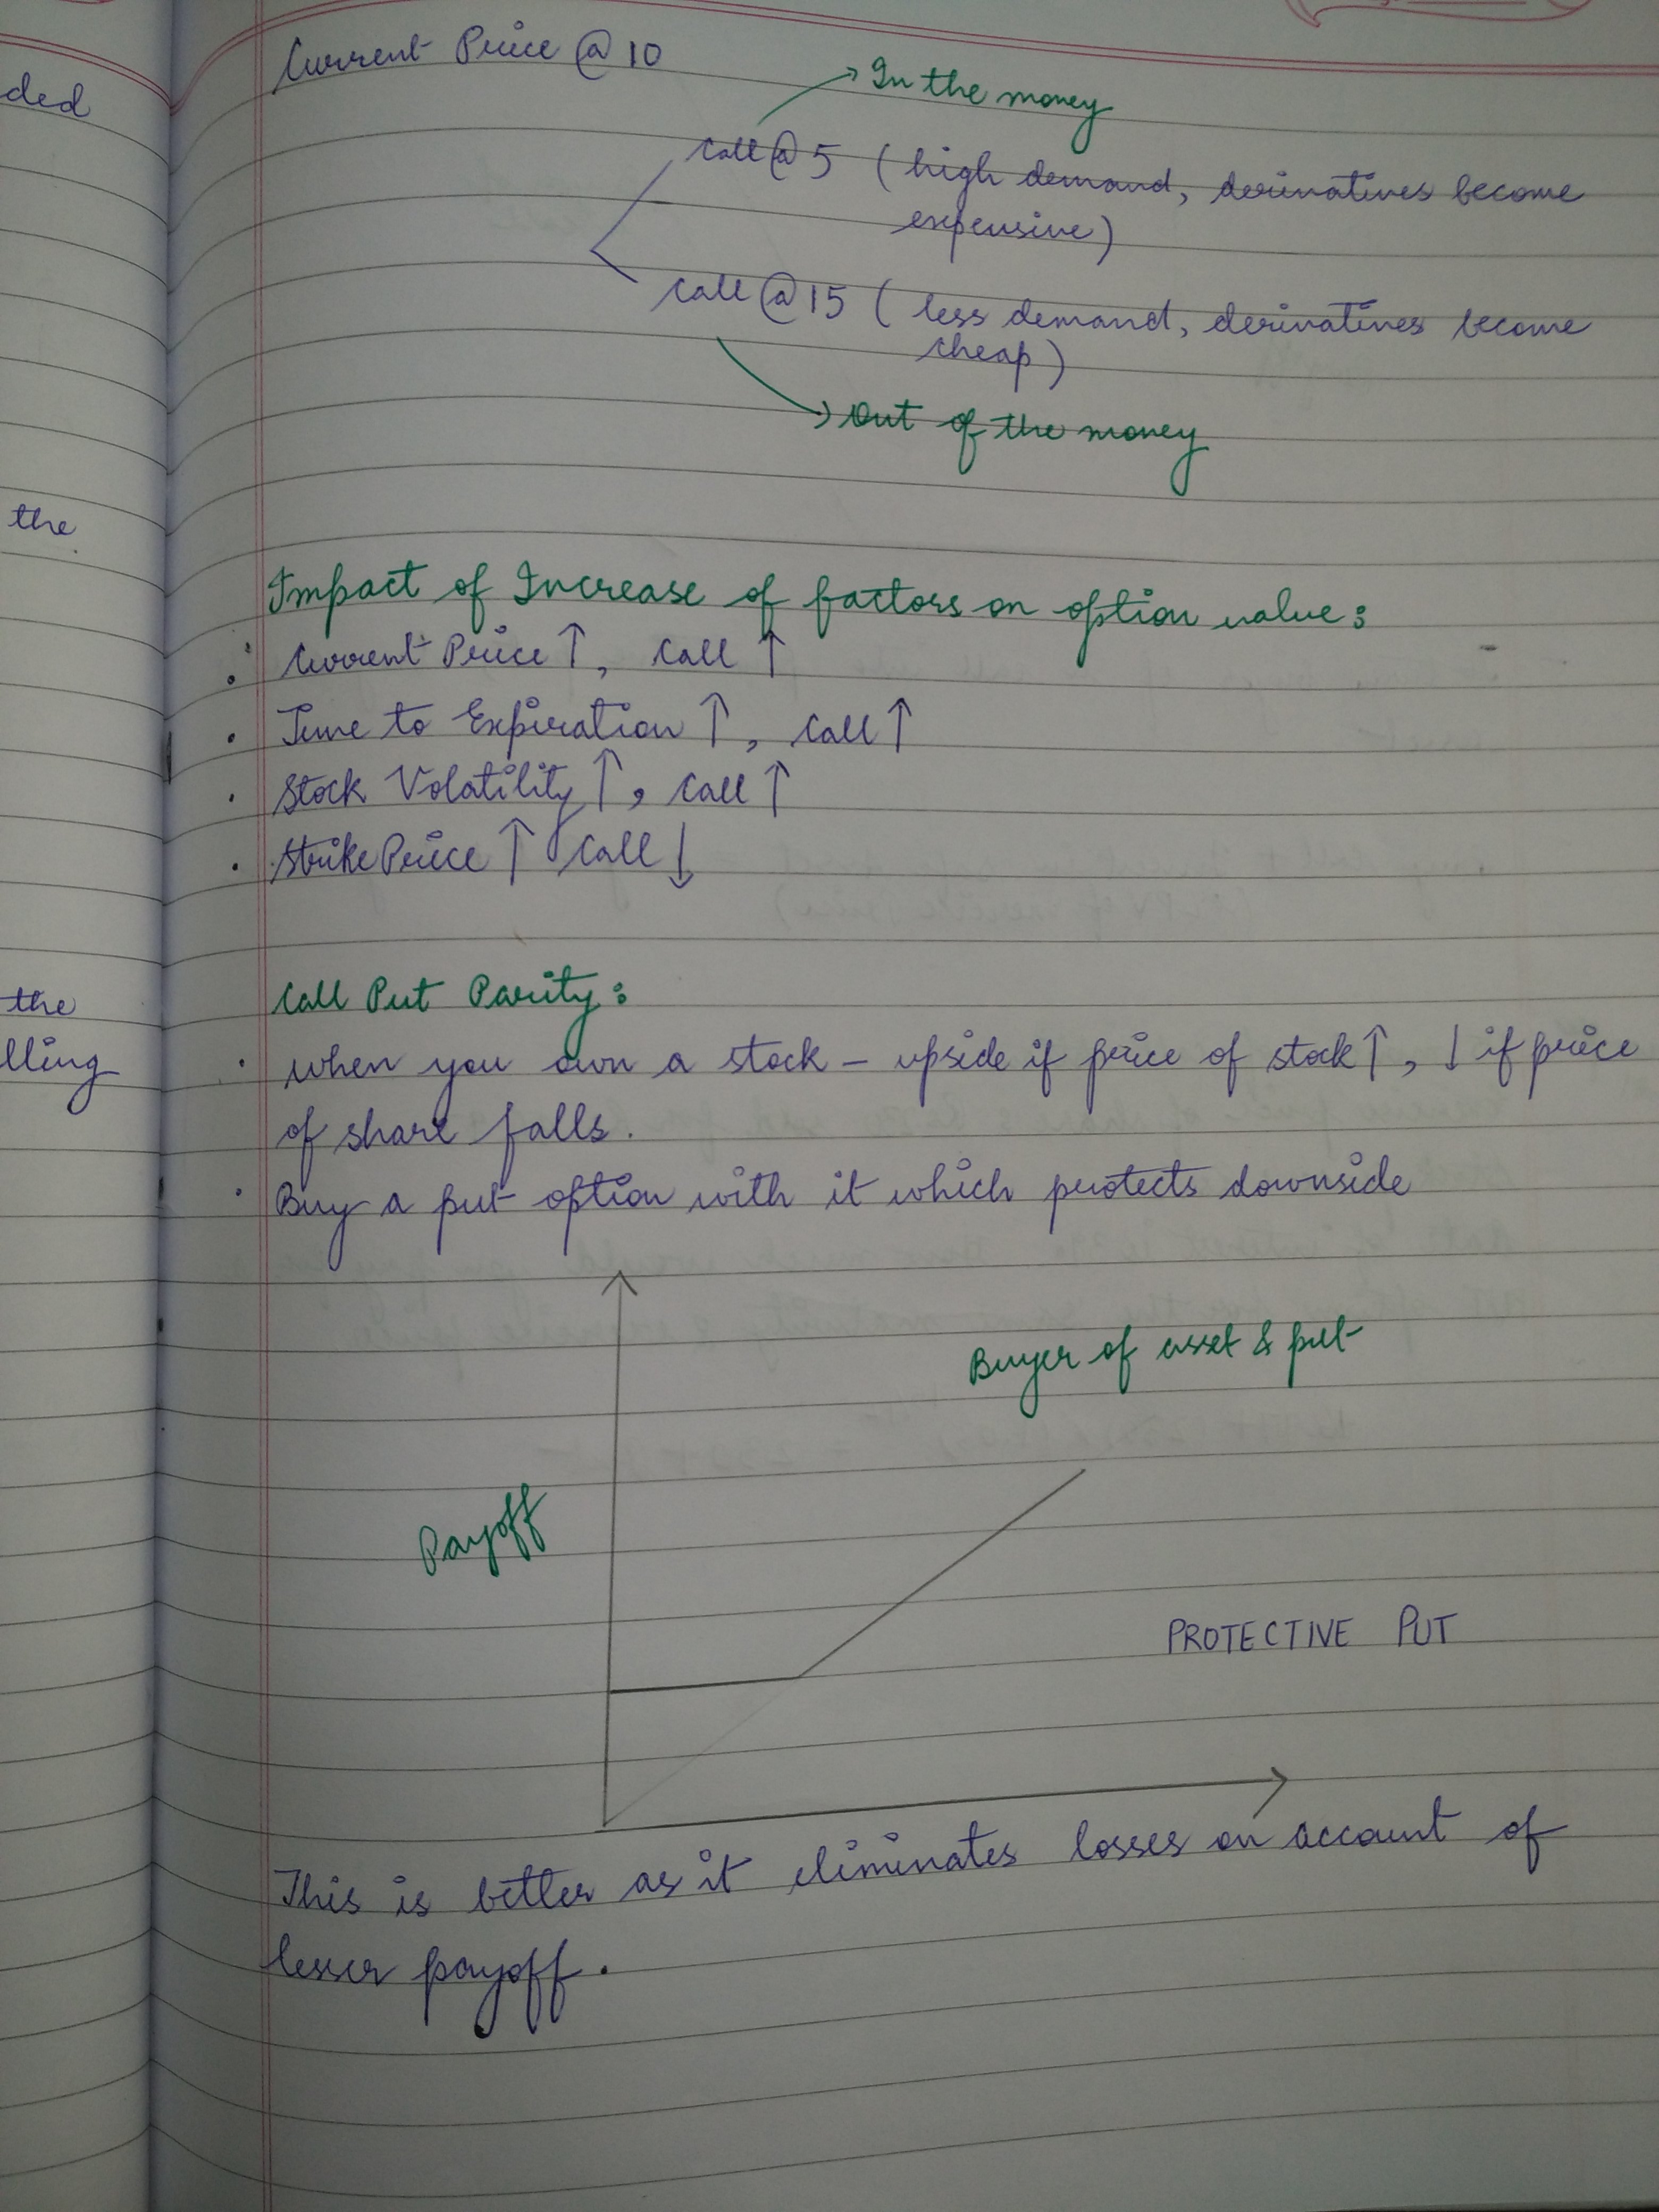 ded
the
the
lling
Current Price @ 10
In the money
Call @ 5 (high demand, derivatives become
expensive)
Call @ 15 (less demand, derivatives become
cheap)
Out of the money
Impact of Increase of factors on option value:
• Current Price ↑, Call ↑
• Time to Expiration ↑, Call ↑
• Stock Volatility ↑, Call ↑
• Strike Price ↑ Call ↓
Call Put Parity:
• When you own a stock – upside if price of stock ↑, ↓ if price
of share falls.
• Buy a put option with it which protects downside
Buyer of asset & put
Payoff
PROTECTIVE PUT
This is better as it eliminates losses on account of
lesser payoff.